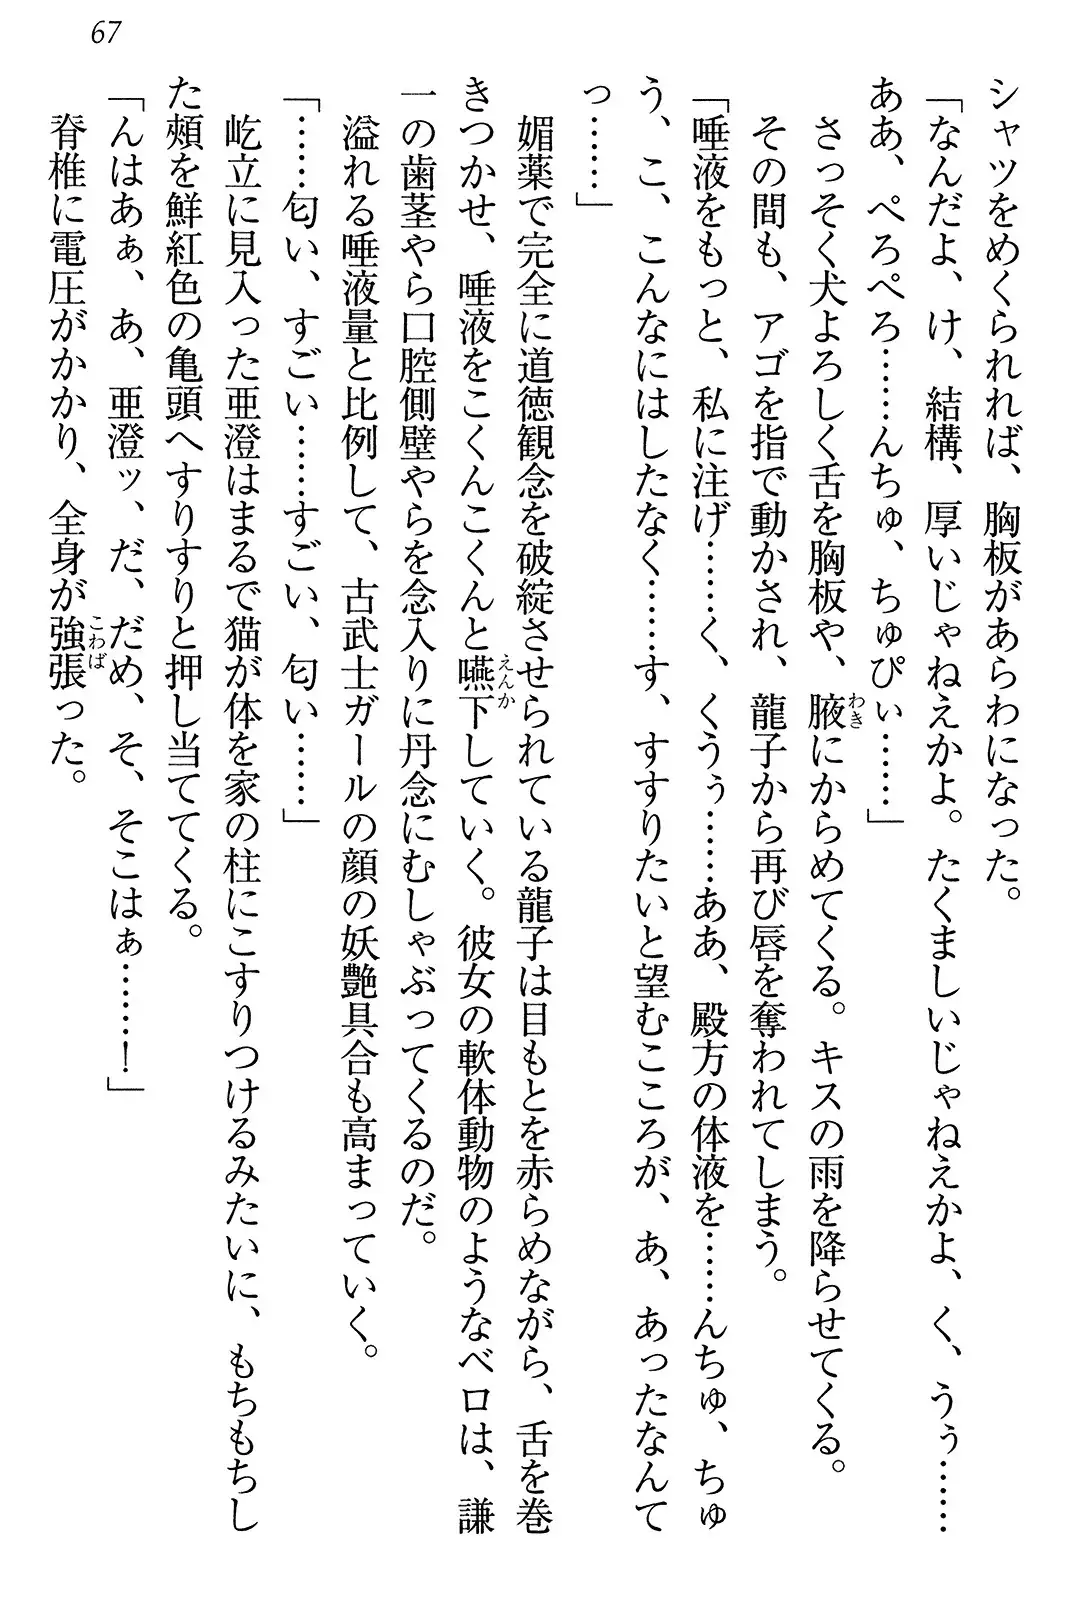 67
シャツをめくられれば、胸板があらわになった。
「なんだよ、け、結構、厚いじゃねえかよ。たくましいじゃねえかよ、く、うぅ……
ああ、ぺろぺろ……んちゅ、ちゅぴぃ……」
さっそく犬よろしく舌を胸板や、腋にからめてくる。キスの雨を降らせてくる。
わき
その間も、アゴを指で動かされ、龍子から再び唇を奪われてしまう。
「唾液をもっと、私に注げ……く、くうぅ……ああ、殿方の体液を……んちゅ、ちゅ
う、こ、こんなにはしたなく……す、すすりたいと望むこころが、あ、あったなんて
っ……」
媚薬で完全に道徳観念を破綻させられている龍子は目もとを赤らめながら、舌を巻
きつかせ、唾液をこくんこくんと嚥下していく。彼女の軟体動物のようなベロは、謙
えんか
一の歯茎やら口腔側壁やらを念入りに丹念にむしゃぶってくるのだ。
溢れる唾液量と比例して、古武士ガールの顔の妖艶具合も高まっていく。
「……匂い、すごい……すごい、匂い……」
屹立に見入った亜澄はまるで猫が体を家の柱にこすりつけるみたいに、もちもちし
た頰を鮮紅色の亀頭へすりすりと押し当ててくる。
「んはあぁ、あ、亜澄ッ、だ、だめ、そ、そこはぁ……！」
脊椎に電圧がかかり、全身が強張った。
こわば